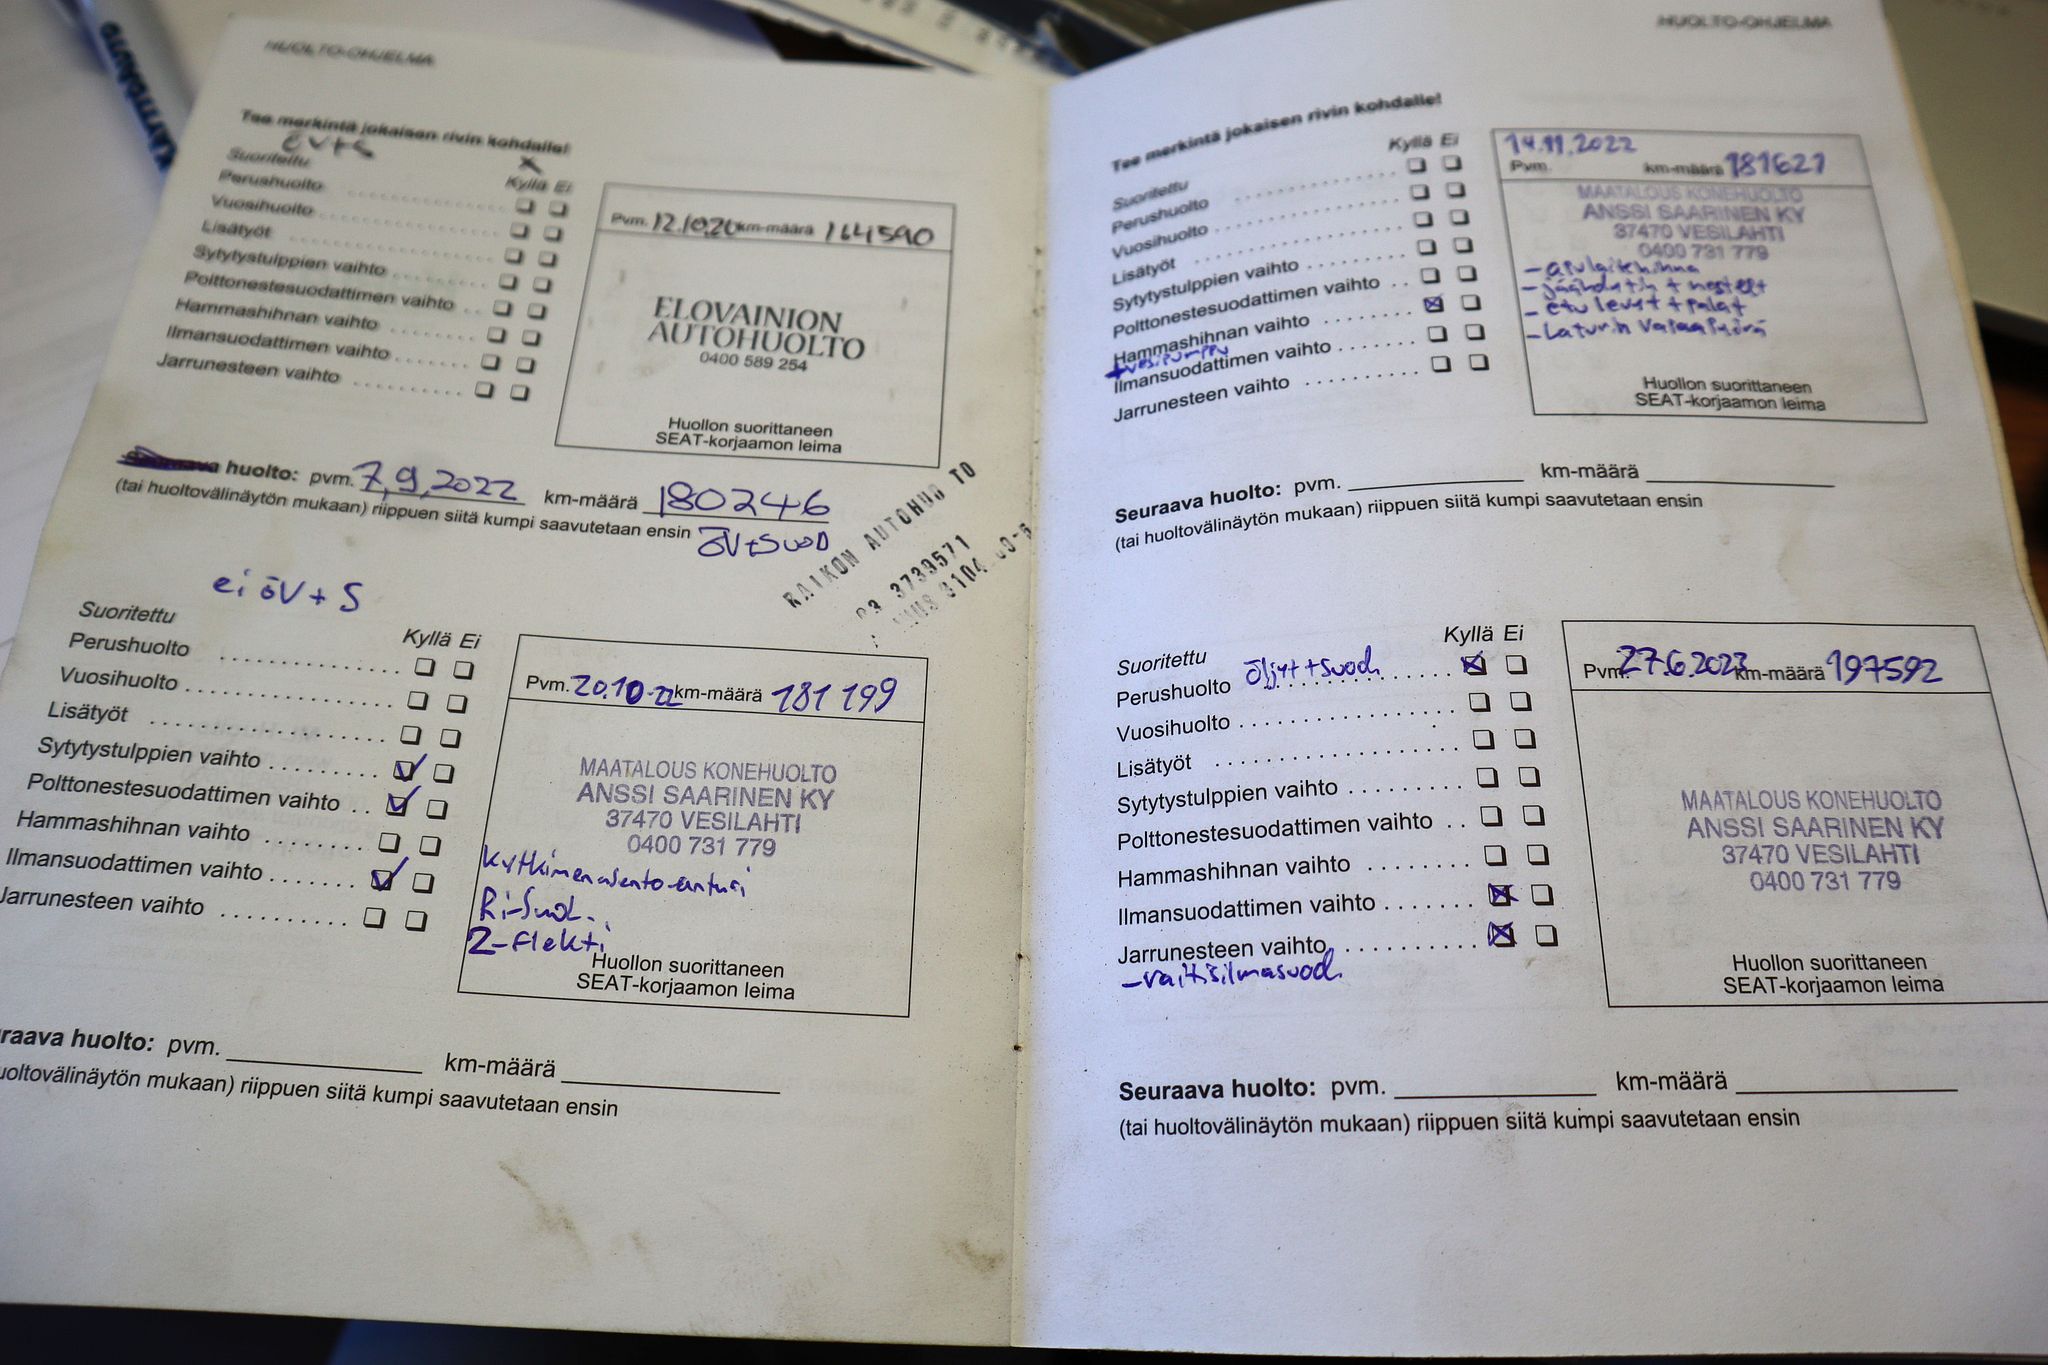 HUOLTO-OHJELMA
Tee merkintä jokaisen rivin kohdalle!
ÖV+S
Suoritettu
Kyllä Ei
Perushuolto
Vuosihuolto
Lisätyöt
Sytytystulppien vaihto
Polttonestesuodattimen vaihto
Hammashihnan vaihto
Ilmansuodattimen vaihto
Jarrunesteen vaihto
Pvm. 12.10.20 km-määrä 164590
ELOVAINION
AUTOHUOLTO
0400 589 254
Huollon suorittaneen
SEAT-korjaamon leima
huolto: pvm. 7.9.2022 km-määrä 180246
(tai huoltovälinäytön mukaan) riippuen siitä kumpi saavutetaan ensin
ÖV+SUOD
RAIKON AUTOHUO TO
03 3739571
ei öV + S
Suoritettu
Kyllä Ei
Perushuolto
Vuosihuolto
Lisätyöt
Sytytystulppien vaihto
Polttonestesuodattimen vaihto
Hammashihnan vaihto
Ilmansuodattimen vaihto
Jarrunesteen vaihto
Pvm. 20.10-22 km-määrä 181 199
MAATALOUS KONEHUOLTO
ANSSI SAARINEN KY
37470 VESILAHTI
0400 731 779
kytkimenasento-anturi
Ri-Suod.
2-flekti
Huollon suorittaneen
SEAT-korjaamon leima
raava huolto: pvm. km-määrä
uoltovälinäytön mukaan) riippuen siitä kumpi saavutetaan ensin
HUOLTO-OHJELMA
Tee merkintä jokaisen rivin kohdalle!
Kyllä Ei
Suoritettu
Perushuolto
Vuosihuolto
Lisätyöt
Sytytystulppien vaihto
Polttonestesuodattimen vaihto
Hammashihnan vaihto
+vesipumppu
Ilmansuodattimen vaihto
Jarrunesteen vaihto
14.11.2022
Pvm. km-määrä 181621
MAATALOUS KONEHUOLTO
ANSSI SAARINEN KY
37470 VESILAHTI
0400 731 779
- apulaitehihna
- jäähdytin + nesteet
- etu levyt + palat
- Laturin vapaapyörä
Huollon suorittaneen
SEAT-korjaamon leima
Seuraava huolto: pvm. km-määrä
(tai huoltovälinäytön mukaan) riippuen siitä kumpi saavutetaan ensin
Kyllä Ei
Suoritettu
Perushuolto öljyt+suod.
Vuosihuolto
Lisätyöt
Sytytystulppien vaihto
Polttonestesuodattimen vaihto
Hammashihnan vaihto
Ilmansuodattimen vaihto
Jarrunesteen vaihto
- raitisilmasuod.
Pvm. 27.6.2023 km-määrä 197592
MAATALOUS KONEHUOLTO
ANSSI SAARINEN KY
37470 VESILAHTI
0400 731 779
Huollon suorittaneen
SEAT-korjaamon leima
Seuraava huolto: pvm. km-määrä
(tai huoltovälinäytön mukaan) riippuen siitä kumpi saavutetaan ensin